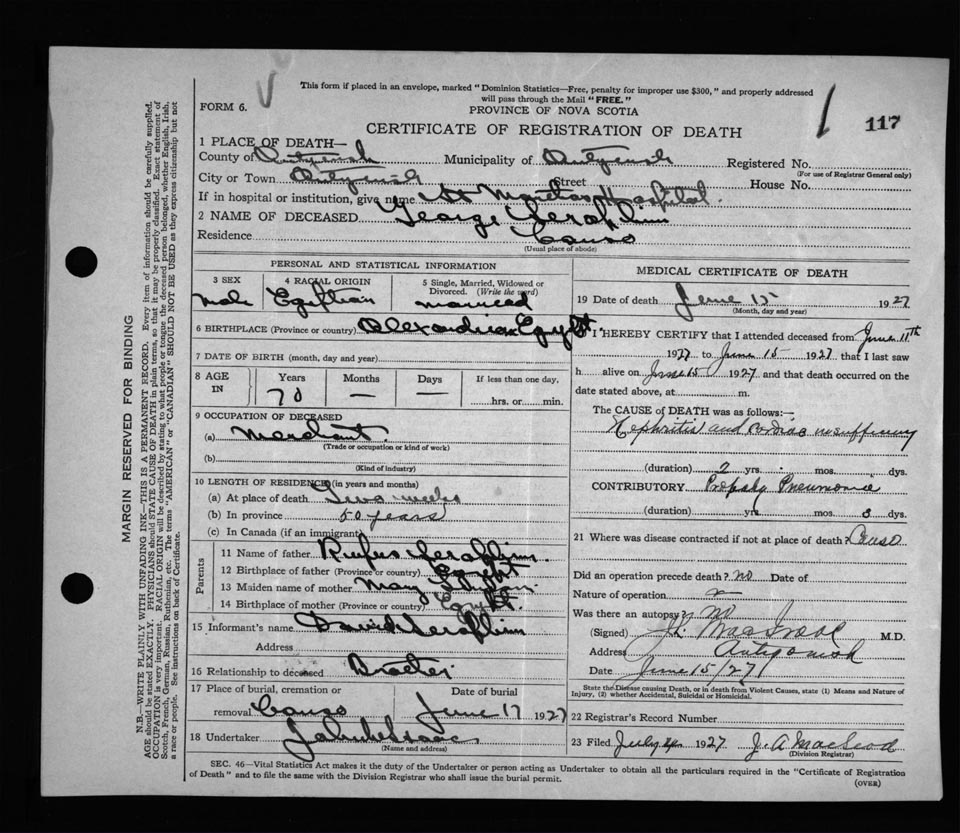 This form if placed in an envelope, marked "Dominion Statistics—Free, penalty for improper use $300," and properly addressed
will pass through the Mail "FREE."
FORM 6.
PROVINCE OF NOVA SCOTIA
CERTIFICATE OF REGISTRATION OF DEATH
117
1 PLACE OF DEATH—
County of Antigonish Municipality of Antigonish Registered No.
(For use of Registrar General only)
City or Town Antigonish Street House No.
If in hospital or institution, give name St Martha Hospital.
2 NAME OF DECEASED George Seraphim
Residence Canso
(Usual place of abode)
PERSONAL AND STATISTICAL INFORMATION
3 SEX
Male
4 RACIAL ORIGIN
Egyptian
5 Single, Married, Widowed or
Divorced. (Write the word)
married
6 BIRTHPLACE (Province or country) Alexandria Egypt.
7 DATE OF BIRTH (month, day and year)
8 AGE IN
Years Months Days If less than one day,
70 — — hrs. or min.
9 OCCUPATION OF DECEASED
(a) Merchant.
(Trade or occupation or kind of work)
(b)
(Kind of industry)
10 LENGTH OF RESIDENCE (in years and months)
(a) At place of death Two weeks
(b) In province 50 years
(c) In Canada (if an immigrant)
Parents
11 Name of father Rufus Seraphim
12 Birthplace of father (Province or country) Egypt
13 Maiden name of mother May
14 Birthplace of mother (Province or country) Egypt.
15 Informant's name David Seraphim
Address
16 Relationship to deceased Brother
17 Place of burial, cremation or Date of burial
removal Canso June 17 1927
18 Undertaker John
(Name and address)
MEDICAL CERTIFICATE OF DEATH
19 Date of death June 15 1927
(Month, day and year)
I HEREBY CERTIFY that I attended deceased from June 11th
1927 to June 15 1927 that I last saw
h alive on June 15 1927 and that death occurred on the
date stated above, at m.
The CAUSE of DEATH was as follows:—
Nephritis and cardiac insufficiency
(duration) 2 yrs. mos. dys.
CONTRIBUTORY Probably Pneumonia
(duration) yrs. mos. 3 dys.
21 Where was disease contracted if not at place of death? Canso
Did an operation precede death? no Date of
Nature of operation
Was there an autopsy? no
(Signed) M.D.
Address Antigonish
Date June 15/27
State the Disease causing Death, or in death from Violent Causes, state (1) Means and Nature of
Injury, (2) whether Accidental, Suicidal or Homicidal.
22 Registrar's Record Number
23 Filed July 1927 J. A. MacLeod
(Division Registrar)
SEC. 46—Vital Statistics Act makes it the duty of the Undertaker or person acting as Undertaker to obtain all the particulars required in the "Certificate of Registration
of Death" and to file the same with the Division Registrar who shall issue the burial permit.
(OVER)
MARGIN RESERVED FOR BINDING
N.B.—WRITE PLAINLY WITH UNFADING INK—THIS IS A PERMANENT RECORD. Every item of information should be carefully supplied.
AGE should be stated EXACTLY. PHYSICIANS should STATE CAUSE OF DEATH in plain terms, so that it may be properly classified. Exact statement of
OCCUPATION is very important. RACIAL ORIGIN will be described by stating to what people or tongue the deceased person belonged, whether English, Irish,
Scotch, French, German, Russian, Ruthenian, etc. The terms "AMERICAN" or "CANADIAN" SHOULD NOT BE USED as they express citizenship but not
a race or people. See instructions on back of Certificate.